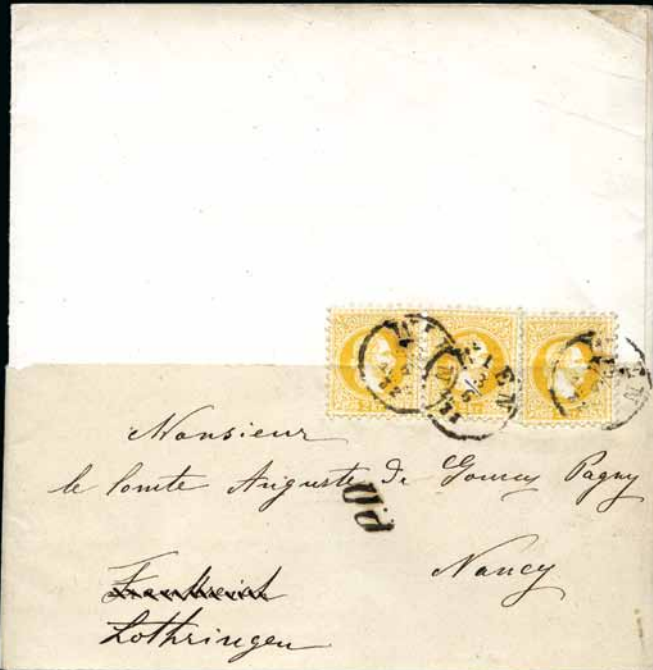 WIEN
WIEN
WIEN
Monsieur
le Comte Auguste de Gourcy Pagny
PD
Nancy
Frankreich
Lothringen